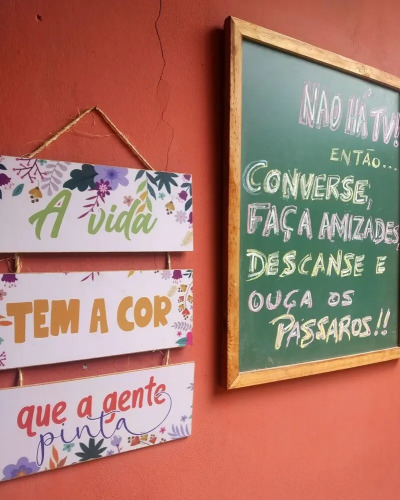 A vida
TEM A COR
que a gente
pinta
NAO HÁ TV!
ENTÃO...
CONVERSE,
FAÇA AMIZADES,
DESCANSE E
OUÇA OS
PÁSSAROS!!